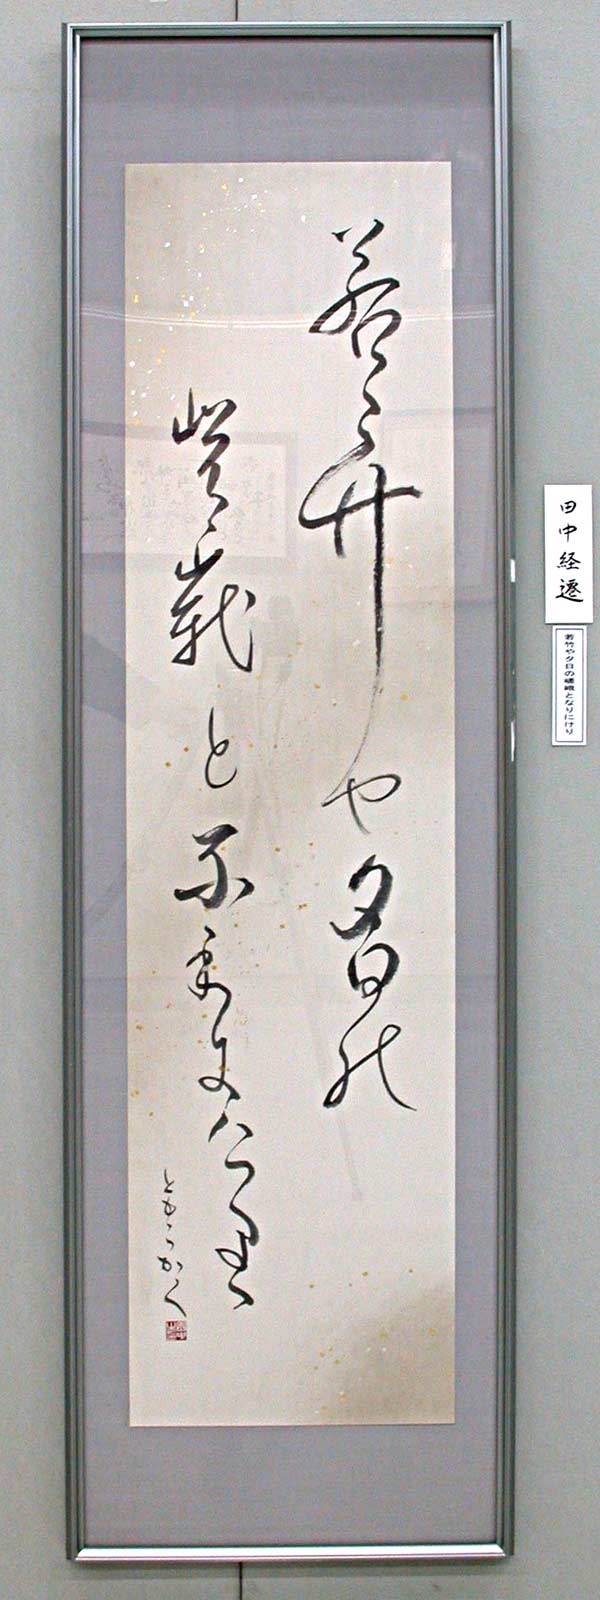 若竹や夕日の
嵯峨と那里尓介里
ともこかく
田中経遷
若竹や夕日の嵯峨となりにけり